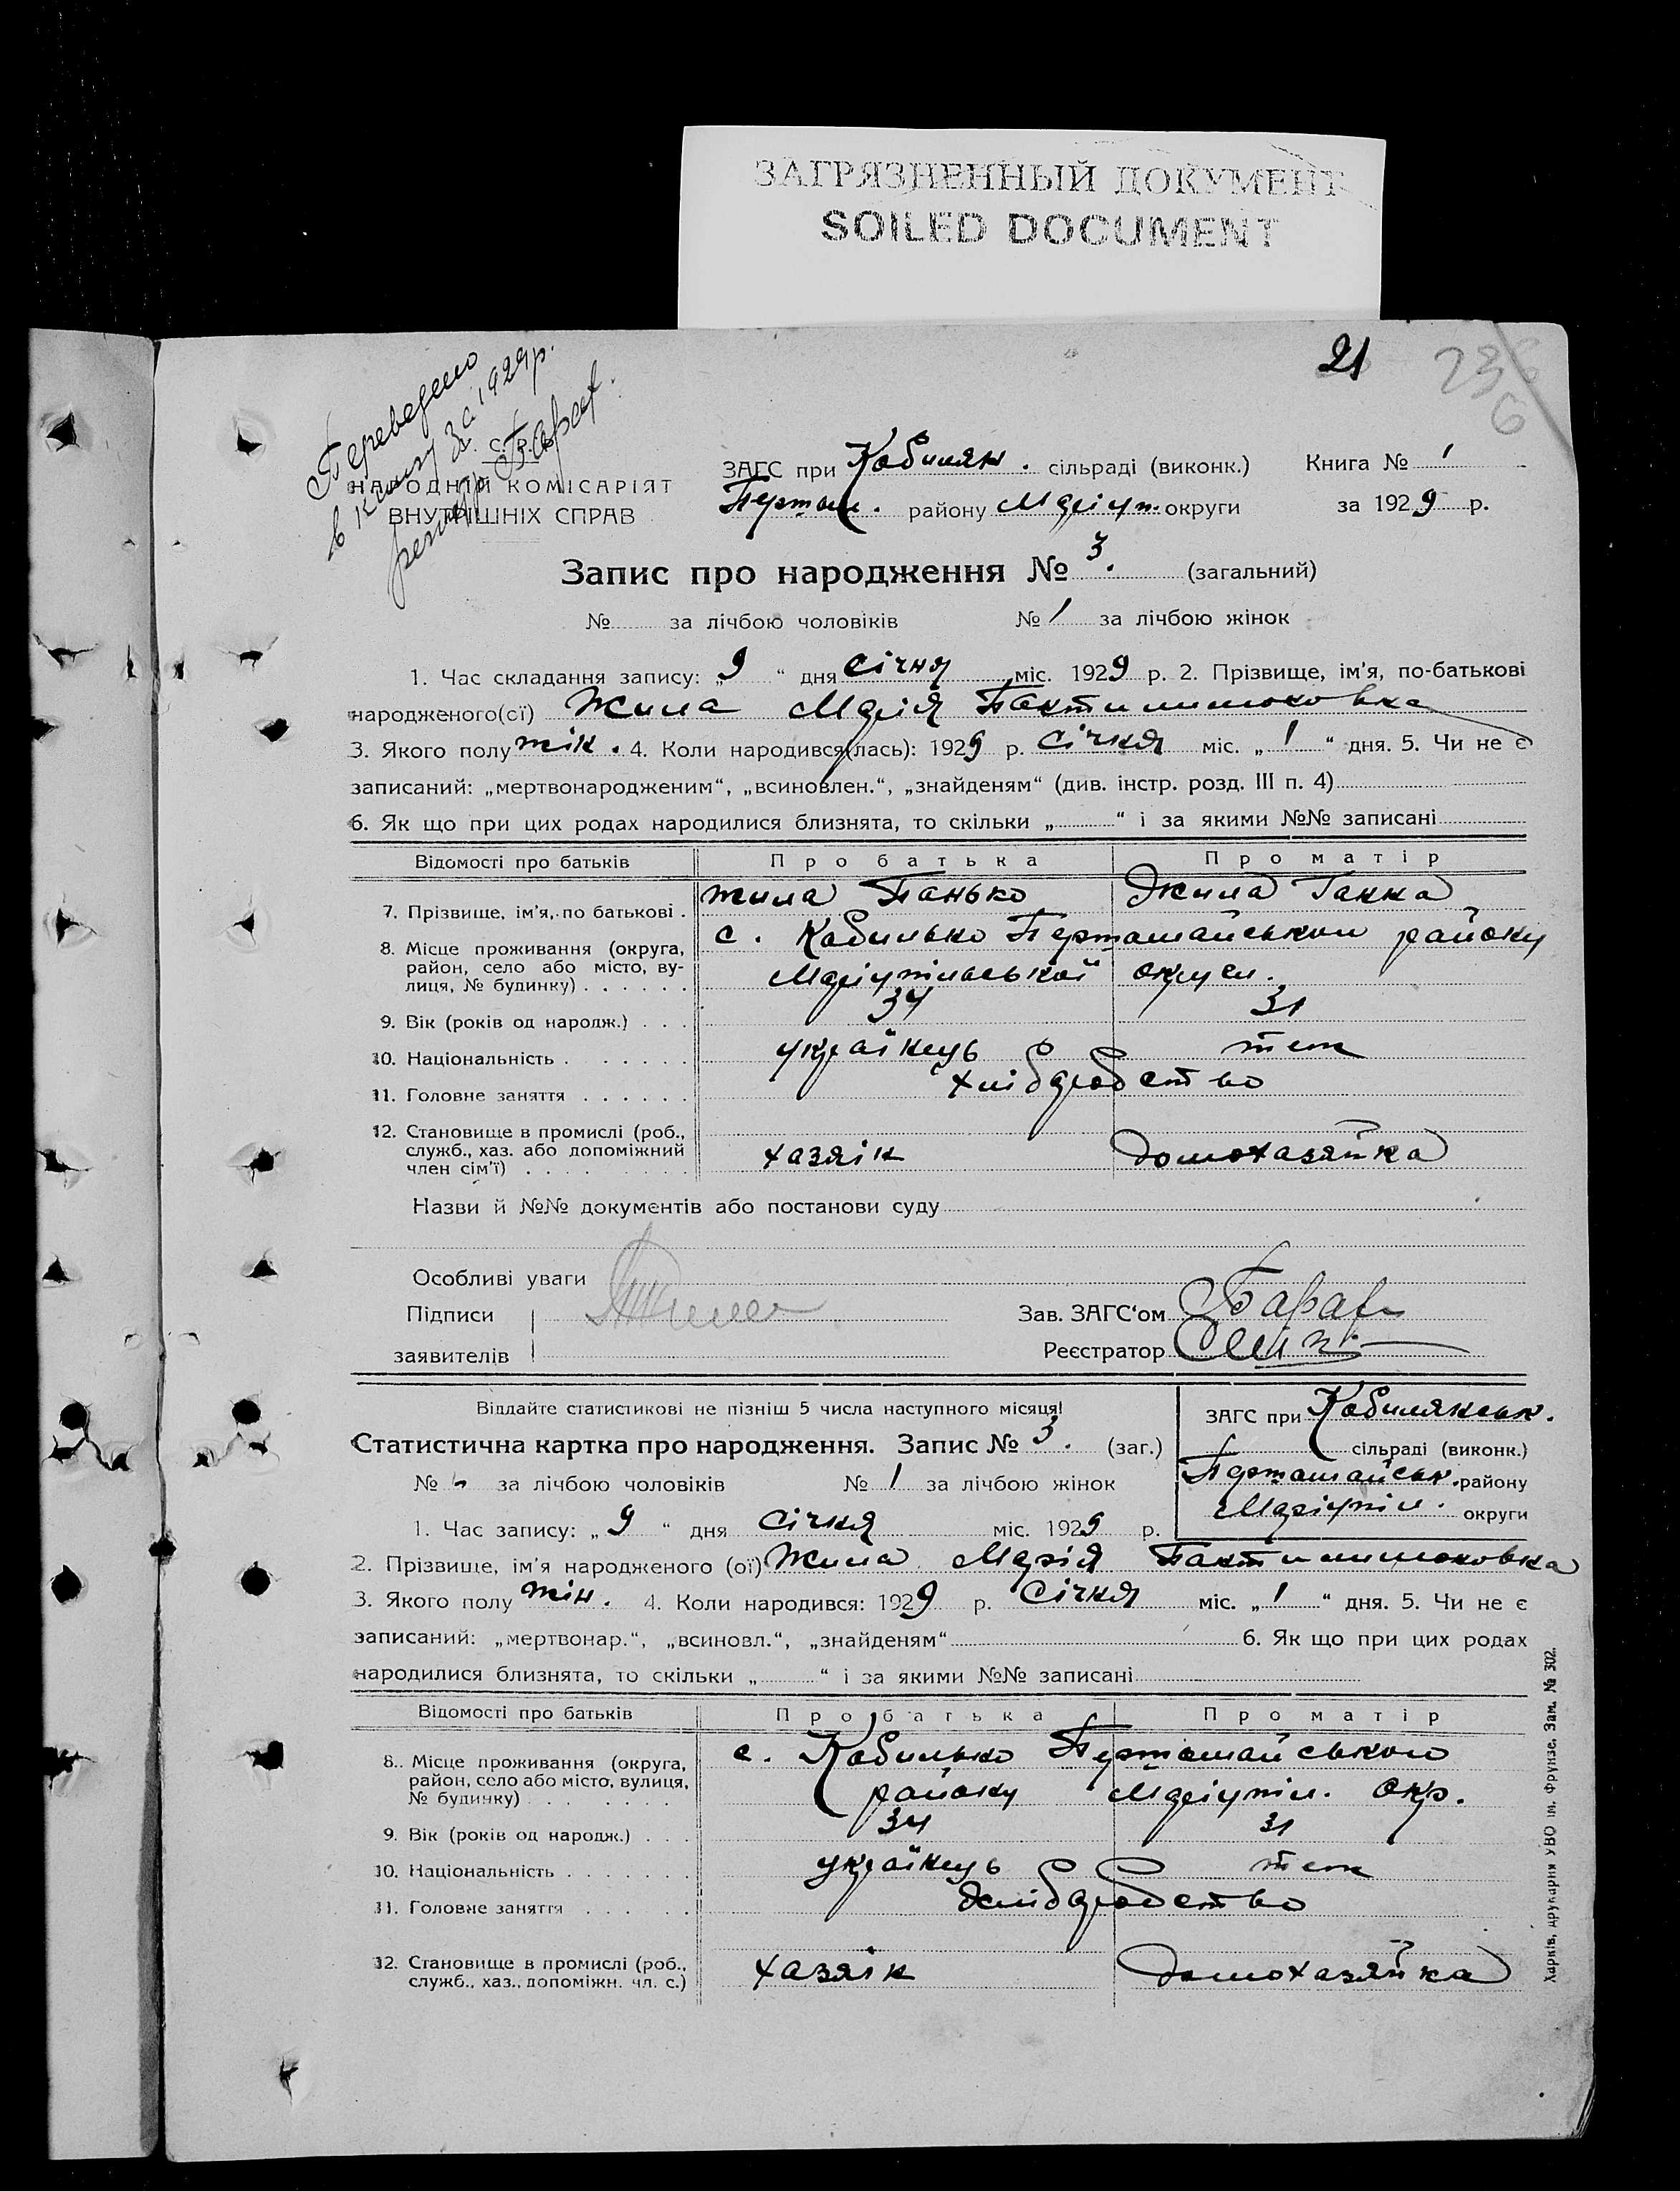 ЗАГРЯЗНЕННЫЙ ДОКУМЕНТ
SOILED DOCUMENT
21
236
6
Переведено
в книгу за 1929р.
С. Р. Р.
НАРОДНІЙ КОМІСАРІЯТ
ВНУТРІШНІХ СПРАВ
ЗАГС при Кобилян. сільраді (виконк.) Книга № 1
району Маріуп. округи за 1929 р.
Запис про народження № 3. (загальний)
№ за лічбою чоловіків № 1 за лічбою жінок
1. Час складання запису: „9“ дня Січня міс. 1929 р. 2. Прізвище, ім'я, по-батькові
народженого(сї) Жила Марія
3. Якого полу жін. 4. Коли народився(лась): 1929 р. Січня міс. „1“ дня. 5. Чи не є
записаний: „мертвонародженим“, „всиновлен.“, „знайденям“ (див. інстр. розд. III п. 4)
6. Як що при цих родах народилися близнята, то скільки „ “ і за якими №№ записані
Відомості про батьків Про батька Про матір
7. Прізвище, ім'я, по батькові . Жила Панько Жила Ганна
8. Місце проживання (округа, с. Кобилько району
район, село або місто, ву- Маріупільської округи.
лиця, № будинку) . . . . . .
9. Вік (років од народж.) . . . 34 31
10. Національність . . . . . . українець теж
11. Головне заняття . . . . . . хліборобство
12. Становище в промислі (роб.,
служб., хаз. або допоміжний хазяїн домохазяйка
член сім'ї) . . . .
Назви й №№ документів або постанови суду
Особливі уваги
Підписи Жила Зав. ЗАГС'ом
заявителів Реєстратор
Віддайте статистикові не пізніш 5 числа наступного місяця!
ЗАГС при Кобилянськ.
Статистична картка про народження. Запис № 3. (заг.) сільраді (виконк.)
№ за лічбою чоловіків № 1 за лічбою жінок району
1. Час запису: „9“ дня Січня міс. 1929 р. Маріупіл. округи
2. Прізвище, ім'я народженого (ої) Жила Марія
3. Якого полу жін. 4. Коли народився: 1929 р. Січня міс. „1“ дня. 5. Чи не є
записаний: „мертвонар.“, „всиновл.“, „знайденям“ 6. Як що при цих родах
народилися близнята, то скільки „ “ і за якими №№ записані
Відомості про батьків Про батька Про матір
8. Місце проживання (округа, с. Кобилько
район, село або місто, вулиця, району Маріупіл. окр.
№ будинку) . . . . . .
9. Вік (років од народж.) . . . 34 31
10. Національність . . . . . . українець теж
11. Головне заняття . . . . . хліборобство
12. Становище в промислі (роб., хазяїн домохазяйка
служб., хаз., допоміжн. чл. с.)
Харків, друкарня УВО ім. Фрунзе. Зам. № 302.